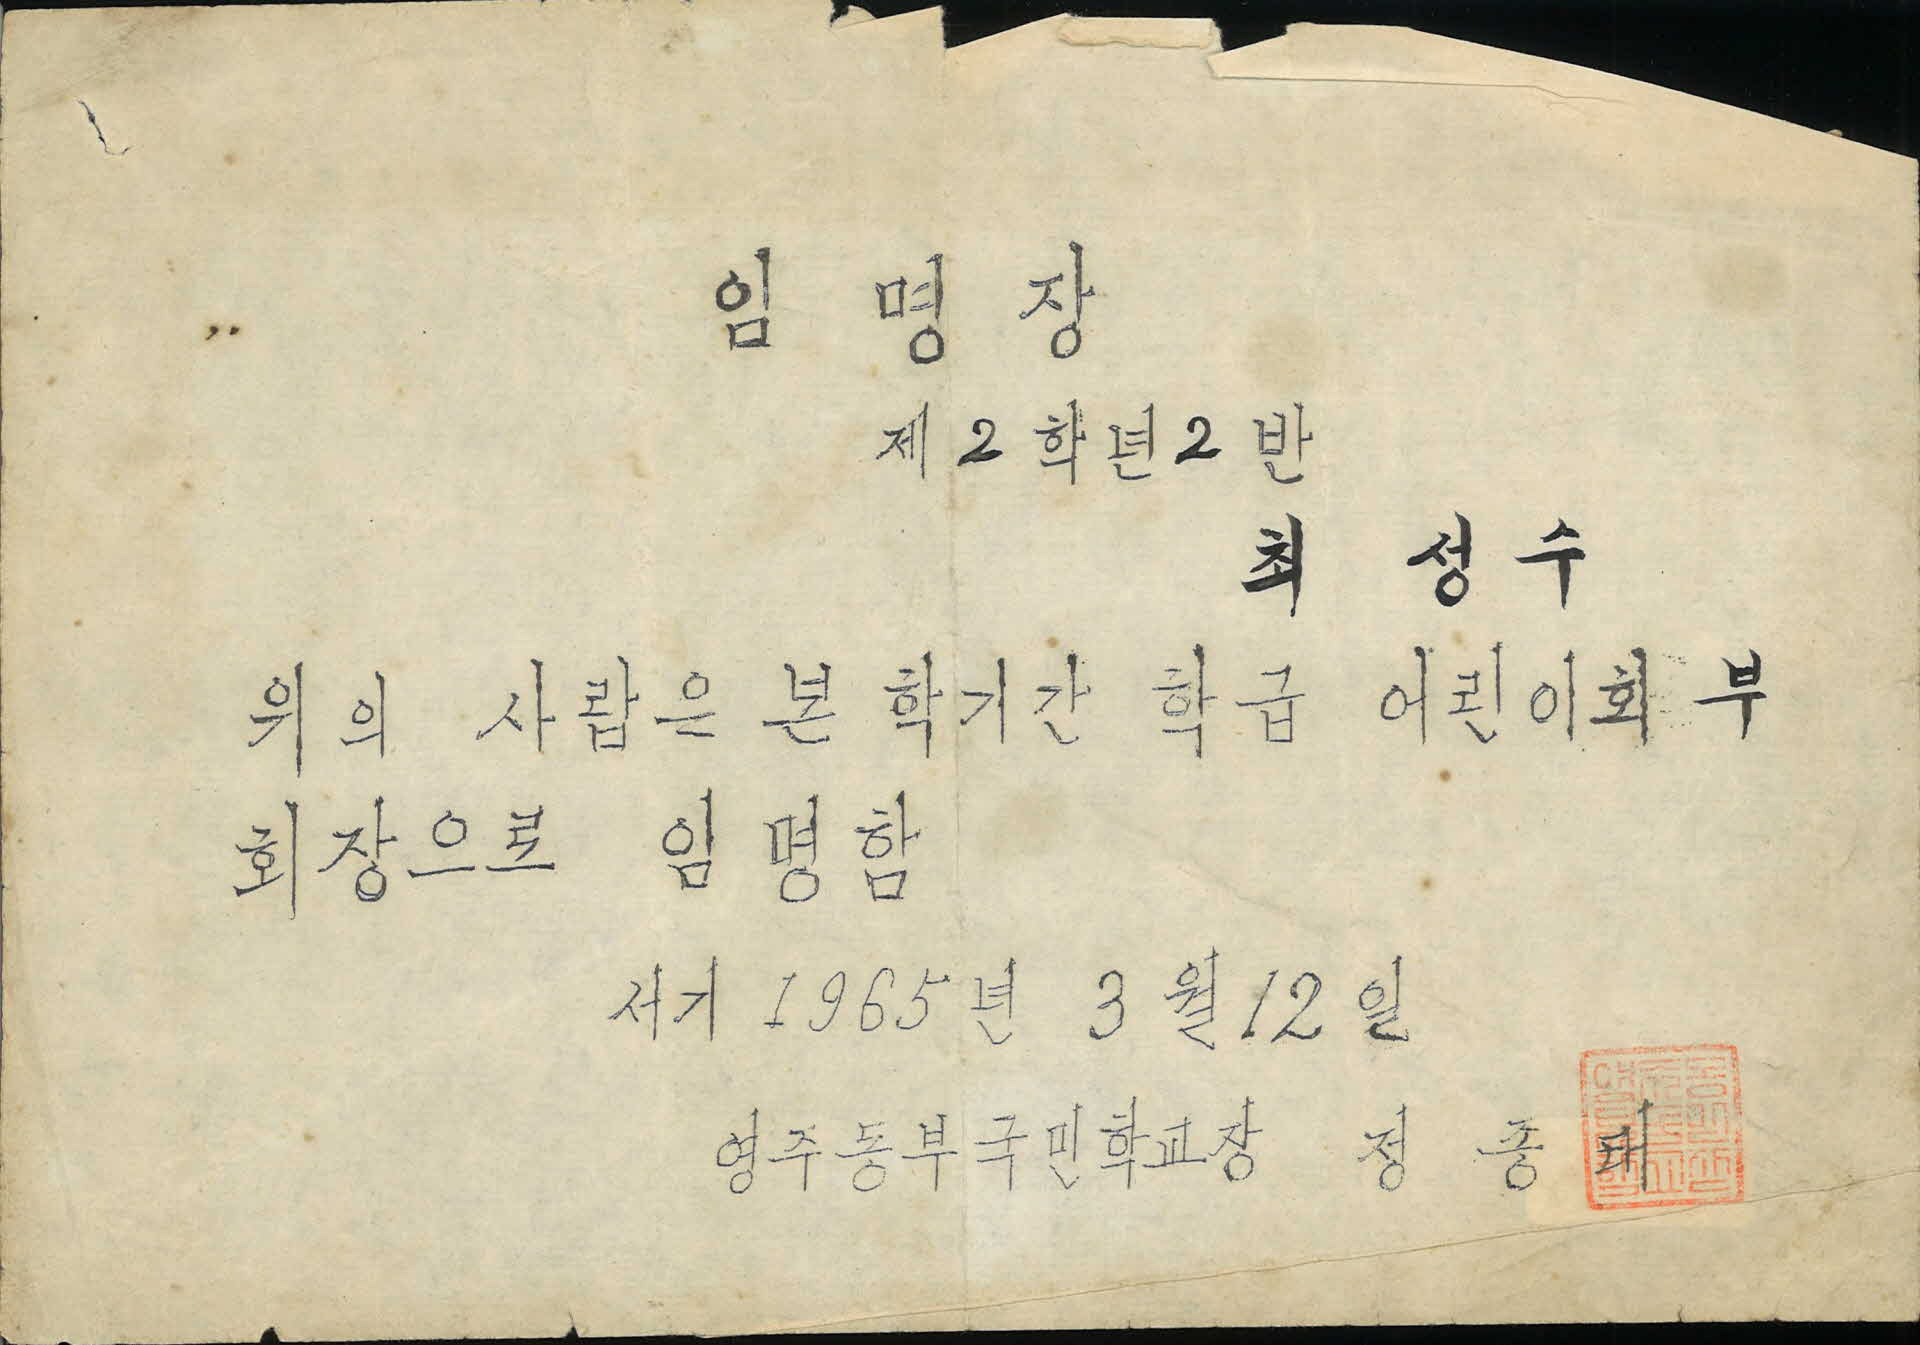 임명장
제2학년2반
최 성수
위의 사람은 본 학기간 학급 어린이회 부
회장으로 임명함
서기 1965년 3월 12일
영주동부국민학교장 정종태